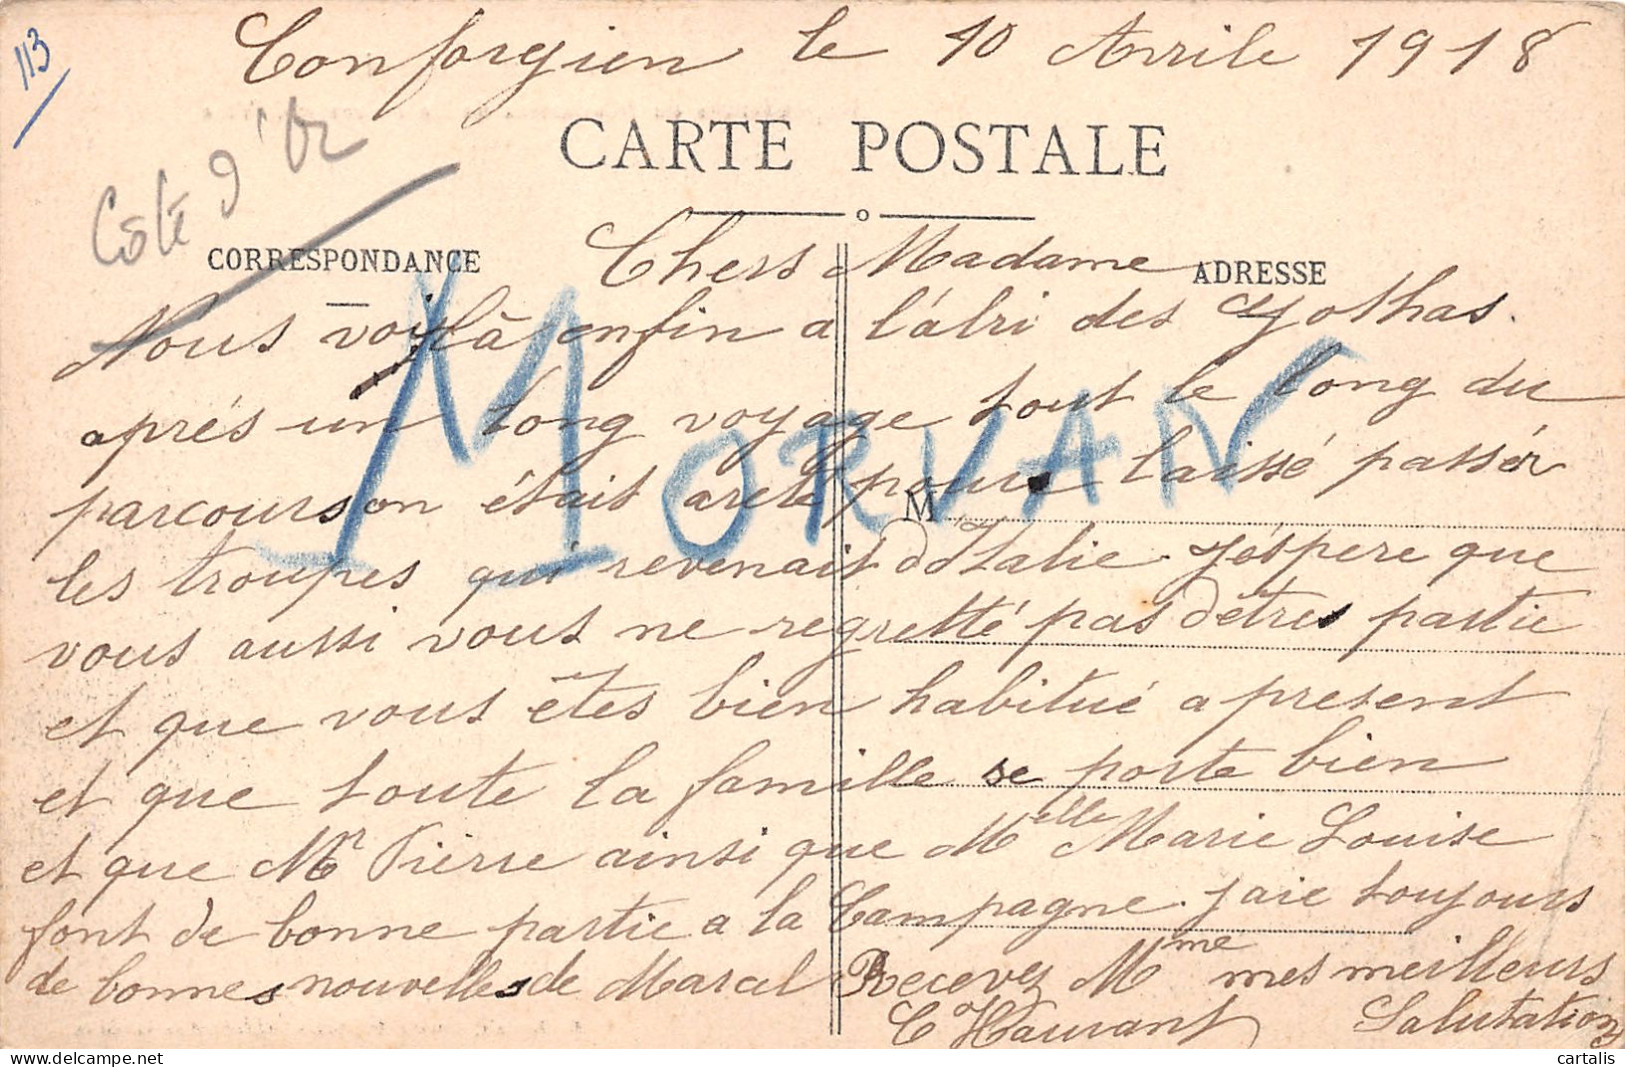 113
Conforgien le 10 Avrile 1918
CARTE POSTALE
Côte d'Or
CORRESPONDANCE
ADRESSE
Chers Madame
Nous voilà enfin a l'abri des Gothas.
après un long voyage tout le long du
parcours on était areté pour laissé passér
les troupes qui revenait d'Italie. J'éspere que
vous aussi vous ne regretté pas d'êtres partie
et que vous êtes bien habitué a present
et que toute la famille se porte bien
et que Mr Pierre ainsi que Melle Marie Louise
font de bonne partie a la Campagne. J'aie toujours
de bonnes nouvelles de Marcel Recevez Mme mes meilleurs
Salutations
MORVAN
M
cartalis